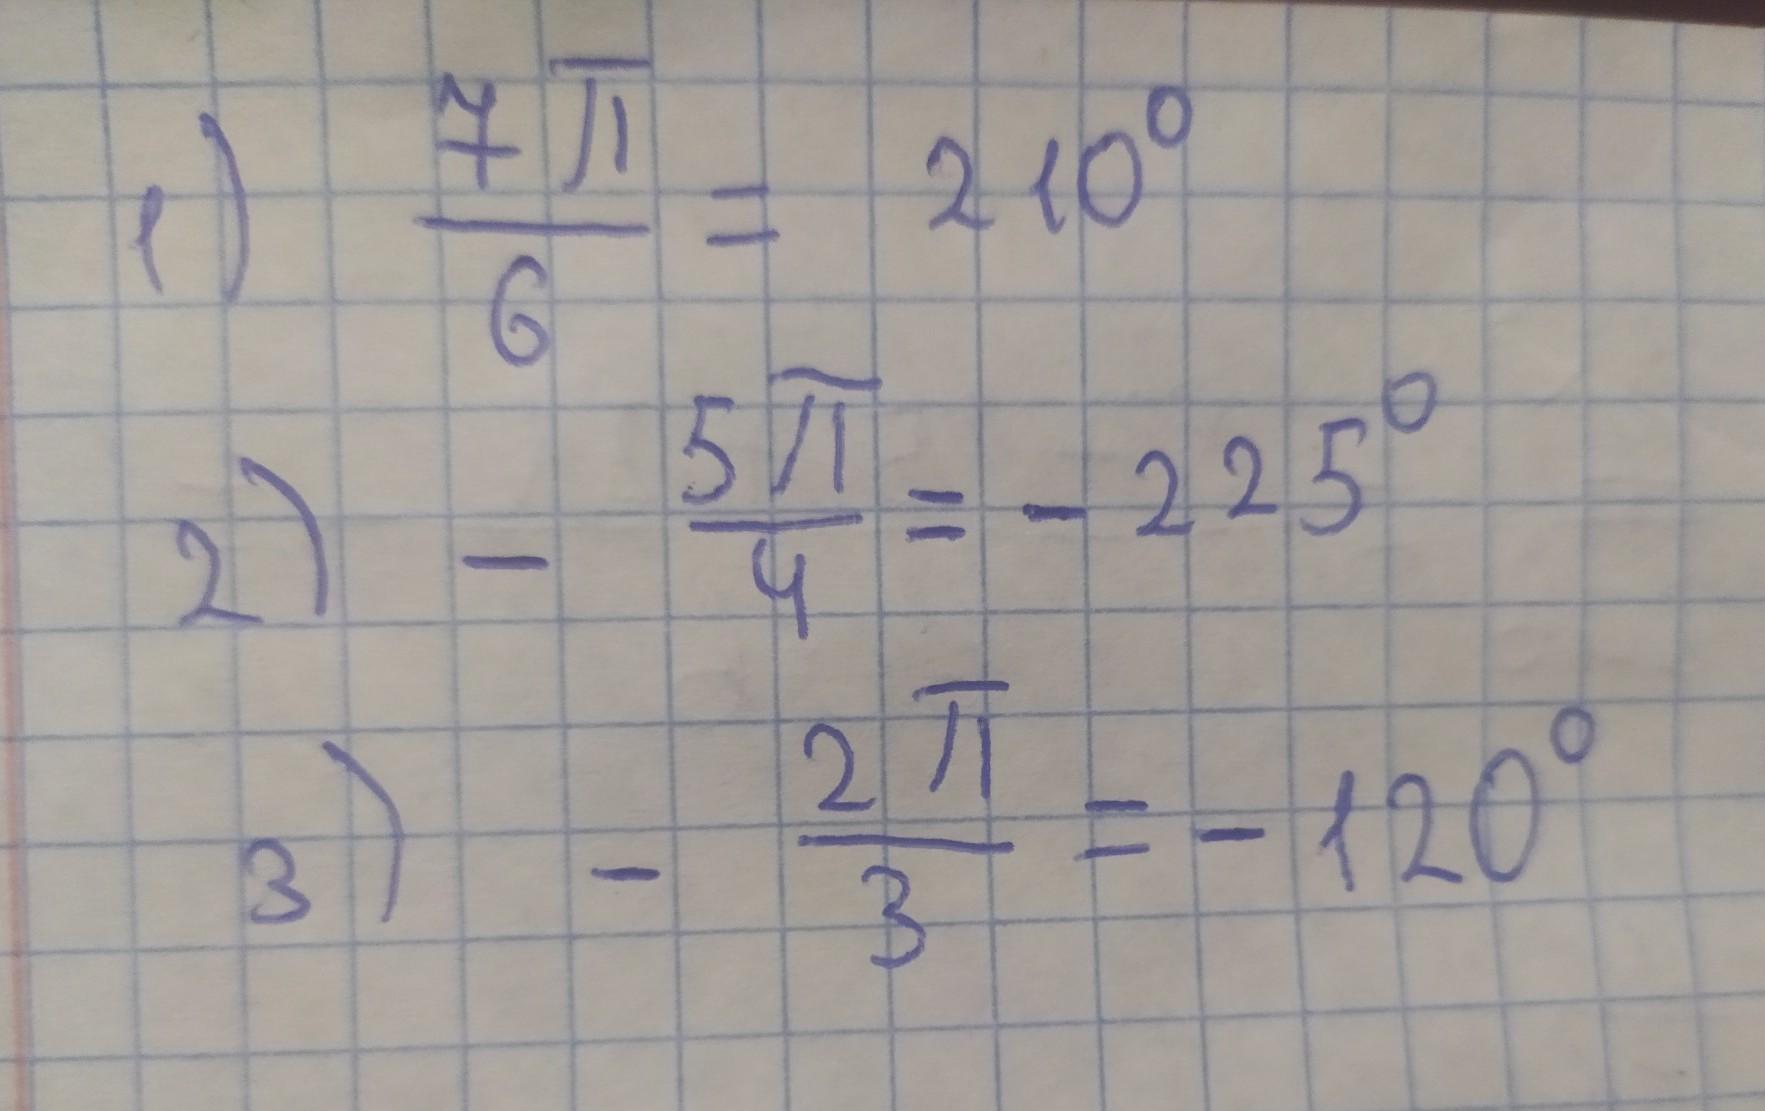 1) 7π/6 = 210°
2) - 5π/4 = - 225°
3) - 2π/3 = - 120°